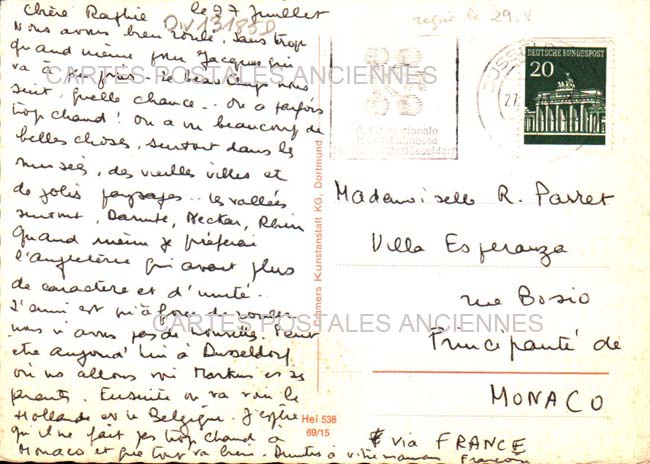 Chère Raphie le 27 Juillet
DW13185D
reçue le 29.V
Nous avons bien roulé, sans trop
quand même pour Jacques qui
va à
CARTES POSTALES ANCIENNES
suit, quelle chance... On a parfois
trop chaud! On a vu beaucoup de
belles choses, surtout dans les
musées, des vieilles villes et
de jolis paysages... les vallées
surtout, Neckar, Rhin
Quand même je préférai
l'angleterre qui avait plus
de caractère et d'unité...
L'ennui est qu'à force de rouler
nous n'avons pas de nouvelles. Peut
être aujourd'hui à Dusseldorf
où nous allons voir Markus et ses
parents. Ensuite on va voir la
Hollande et la Belgique. J'espère
qu'il ne fait pas trop chaud à
Monaco et que tout va bien. à votre maman
Cramers Kunstanstalt KG, Dortmund
Hei 538
69/15
DÜSSELDORF
27.
DEUTSCHE BUNDESPOST
20
Internationale
Düsseldorf
Mademoiselle R. Parret
Villa Esperanza
rue Bosio
CARTES POSTALES ANCIENNES
Principauté de
MONACO
via FRANCE